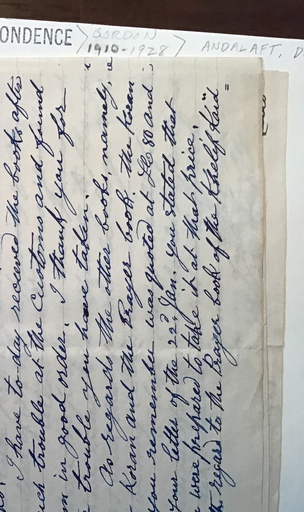 I have to-day recieved the books after
uch trouble at the Customs and found
m in good order. I thank you for
trouble you have taken.
As regards the other books, namely,
Koran and the Prayer book. the Koran
you remember was quoted at 80 and
your letter of the 22d Jan. you stated that
were prepared to take it at that price.
regard to the Prayer book of the Khelif Kaïd=
ONDENCE
GORDON
1910-1928)
ANDALAFT,